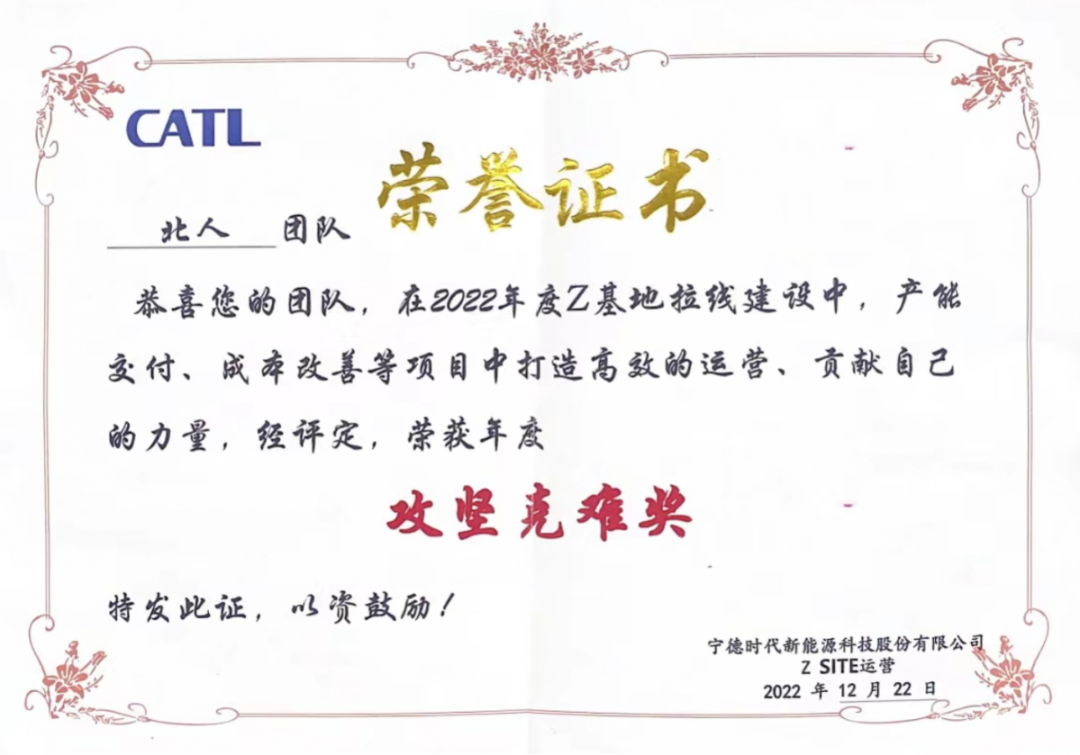 CATL
荣誉证书
北人 团队
恭喜您的团队，在2022年度Z基地拉线建设中，产能
交付、成本改善等项目中打造高效的运营、贡献自己
的力量，经评定，荣获年度
攻坚克难奖
特发此证，以资鼓励！
宁德时代新能源科技股份有限公司
Z SITE运营
2022 年 12 月 22 日